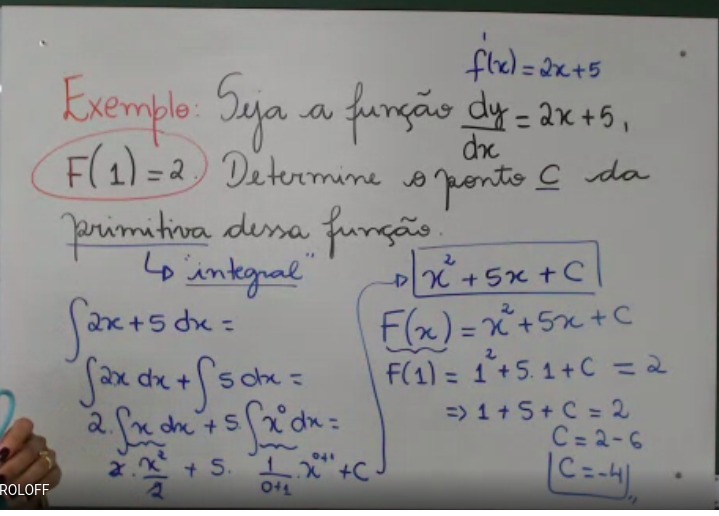 f'(x) = 2x+5
Exemplo: Seja a função dy/dx = 2x+5,
F(1) = 2. Determine o ponto C da
primitiva dessa função.
↳ "integral"
∫2x+5 dx =
∫2x dx + ∫5 dx =
2.∫x dx + 5.∫x⁰dx =
2.x²/2 + 5. 1/(0+1).x⁰⁺¹ + C
x² + 5x + C
F(x) = x² + 5x + C
F(1) = 1² + 5.1 + C = 2
=> 1 + 5 + C = 2
C = 2-6
C = -4
ROLOFF